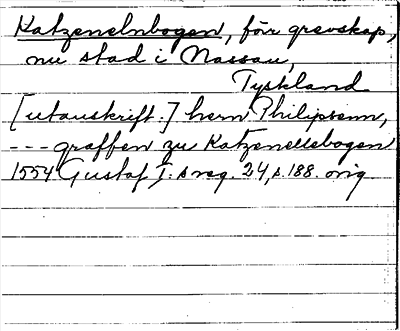 Katzenelnbogen, förr grevskap,
nu stad i Nassau,
Tyskland
[utanskrift.] hern Philipsenn,
--- graffen zu Katzenellebogen
1554 Gustaf I:s reg. 24, s. 188. orig